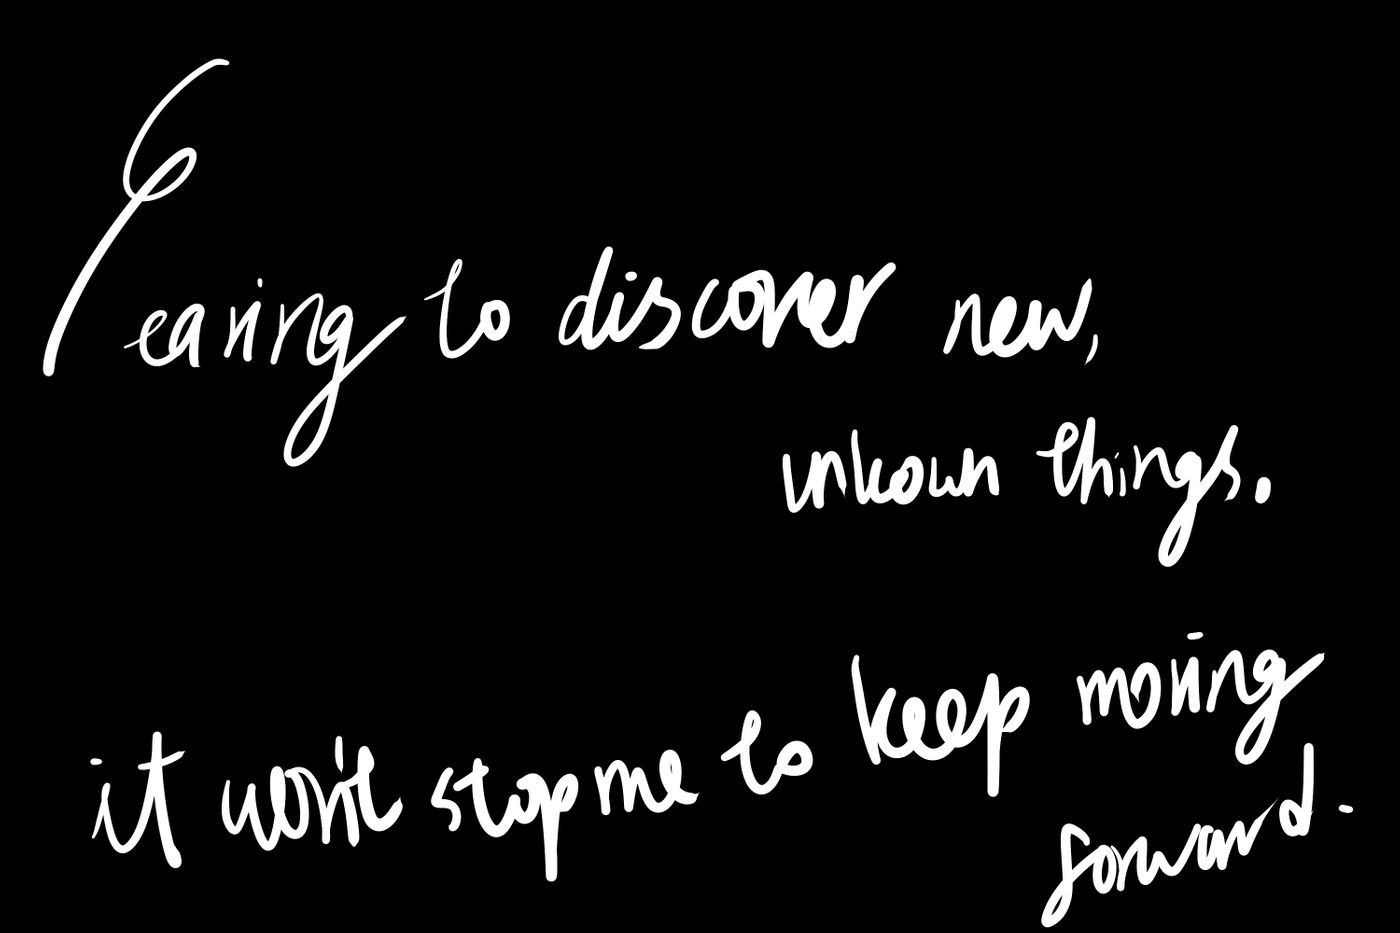 Fearing to discover new,
unkown things.
it won't stop me to keep moving
forward.